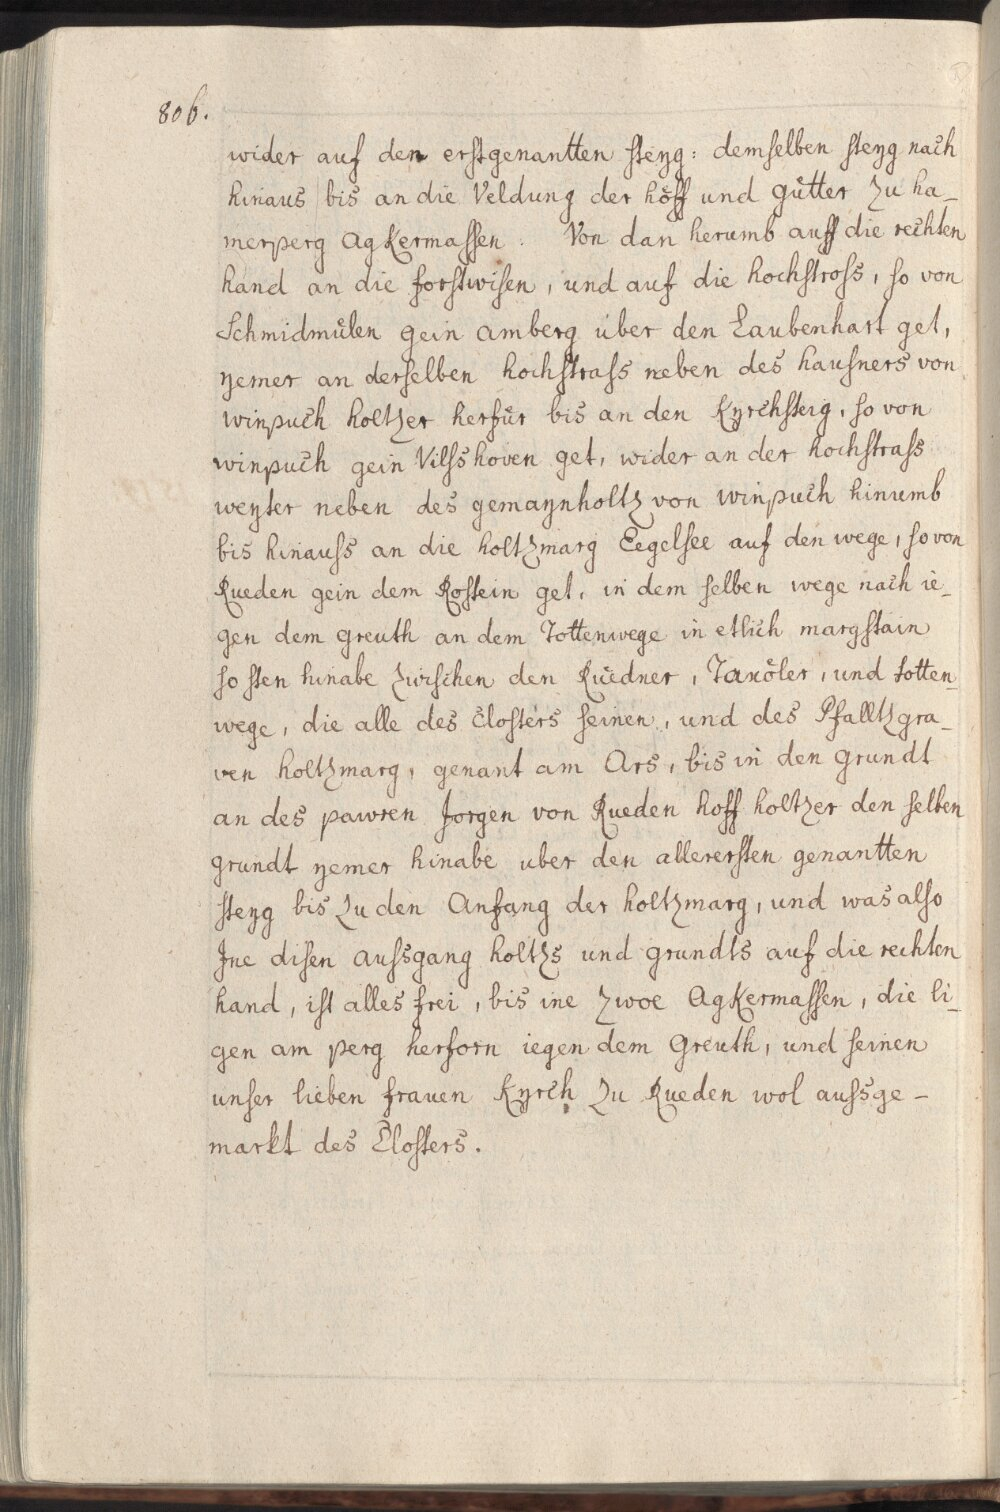 806.
wider auf den erstgenantten steyg: demselben steyg nach
hinaus bis an die Veldung der höff und gütter zu ha-
merperg Agkermassen. Von dan herumb auff die rechten
hand an die forstwisen, und auf die hochstross, so von
Schmidmülen gein amberg uber den Laubenhart get,
yemer an derselben hochstrass neben des hausners von
winpuch holtzer herfür bis an den Kyrchsteig, so von
winpuch gein Vilsshoven get, wider an der hochstrass
weyter neben des gemaynholtz von winpuch hinumb
bis hinauss an die holtzmarg Eegelsee auf den wege, so von
Rueden gein dem Rostein get, in dem selben wege nach ie-
gen dem greuth an dem Tottenwege in etlich margstain
so sten hinabe zwischen den Ruedner, Taxöler, und totten-
wege, die alle des Closters seinen, und des Pfalltzgra-
ven holtzmarg, genant am Ars, bis in den grundt
an des pawren Jorgen von Rueden hoff holtzer den selben
grundt yemer hinabe uber den allerersten genantten
steyg bis zu den Anfang der holtzmarg, und was also
Jne disen aussgang holtzs und grundts auf die rechten
hand, ist alles frei, bis ine zwoe Agkermassen, die li-
gen am perg herforn iegen dem Greuth, und seinen
unser lieben frauen Kyrch zu Rueden wol aussge-
markt des Closters.